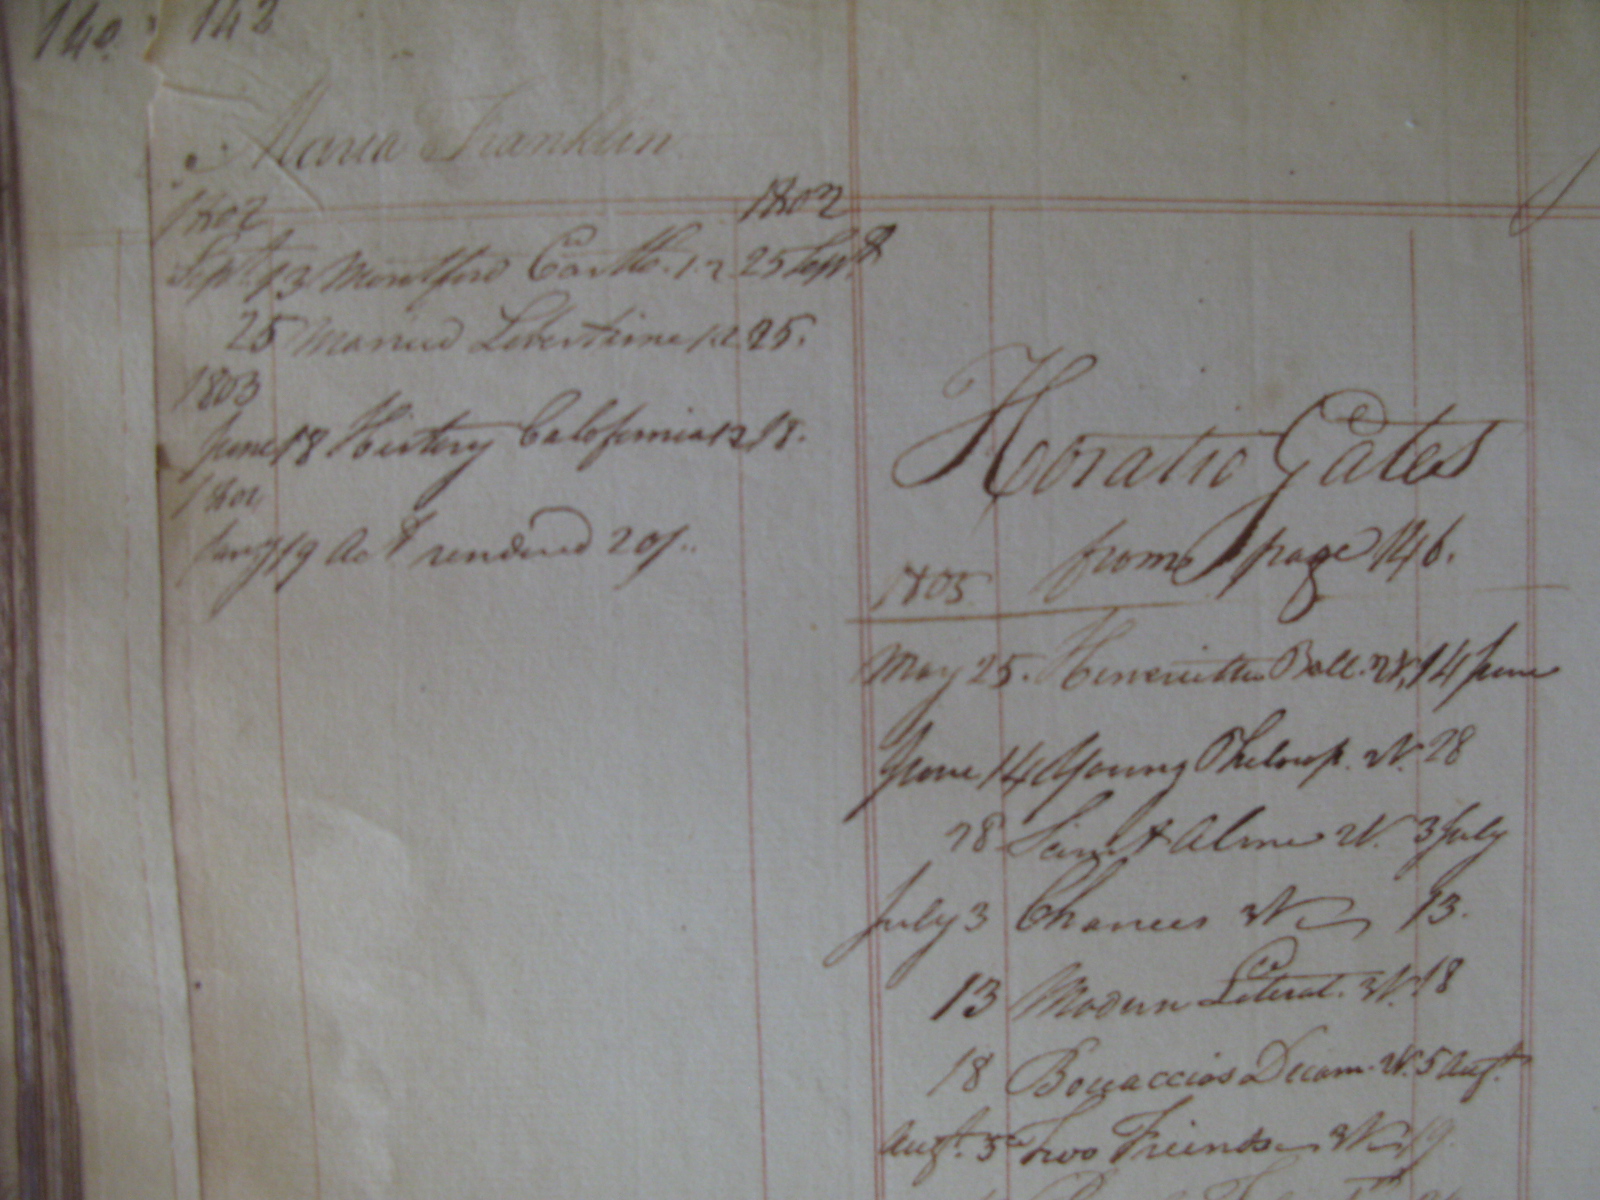 140. 142
Maria Franklin
1802 1802
Sept 13 Montford Castle. 1.2 25 Sept
25 Married Libertine 1.2 25.
1803
June 18 History Califormia 12 18.
Jany 19 Act rendered 20/..
Horatio Gates
from page 146.
1805
May 25. Henrietta Bell. 2V. 14 June
June 14 Young Philosop. 2V. 28
28 St Alme 2V. 3 July
July 3 Chances 3V 13.
13 Modern Literat. 3V. 18
18 Bocaccios Decam. 2V. 5 Augt.
Augt. 5 Two Friends 3V 19.